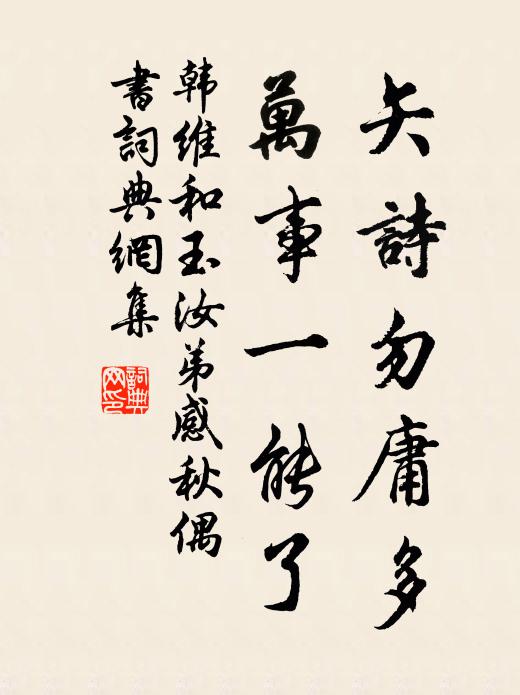 矢詩勿庸多
萬事一能了
韩维和玉汝弟感秋偶
書詞典網集
詞典网印